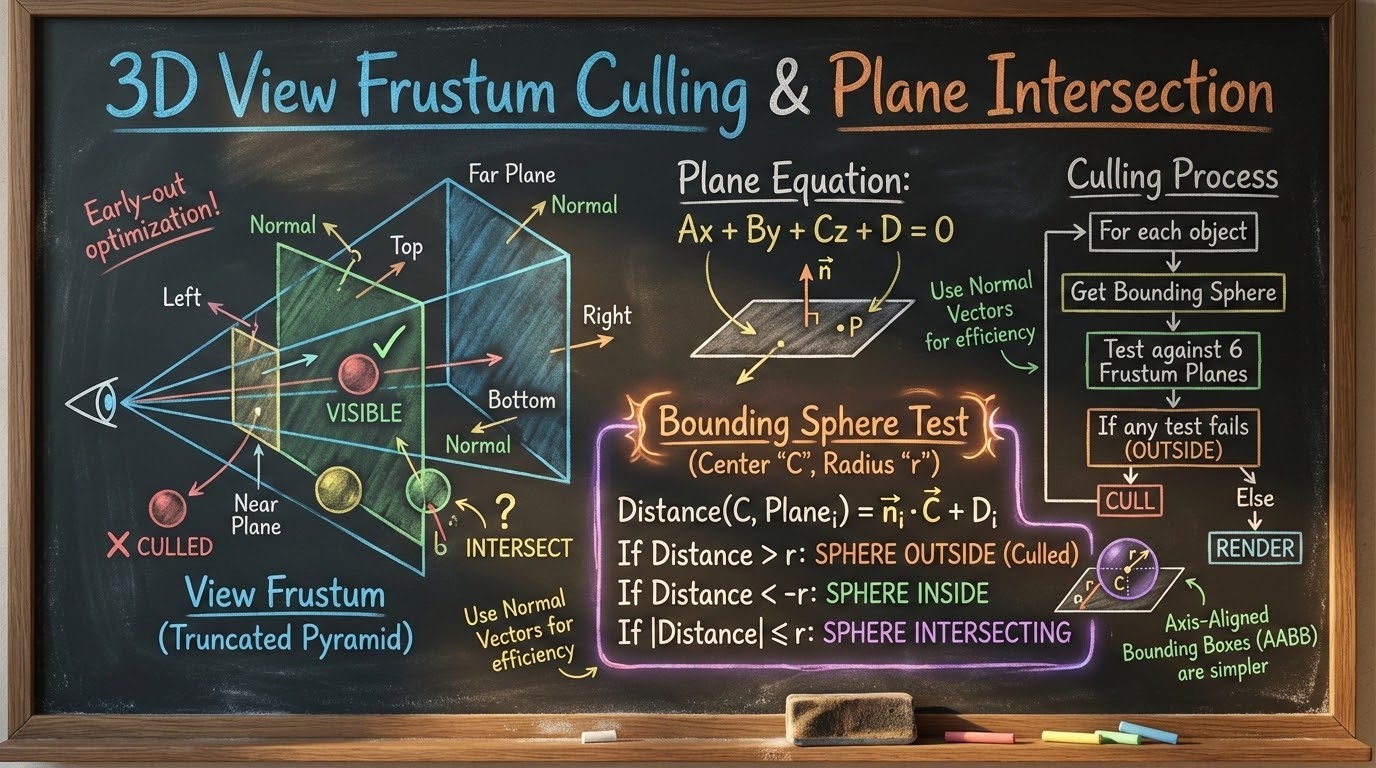 3D View Frustum Culling & Plane Intersection
Early-out
optimization!
Far Plane
Normal
Normal
Top
Left
Right
VISIBLE
Bottom
Normal
Near
Plane
CULLED
?
INTERSECT
View Frustum
(Truncated Pyramid)
Use Normal
Vectors for
efficiency
Plane Equation:
Ax + By + Cz + D = 0
n⃗
P
Use Normal
Vectors
for efficiency
Bounding Sphere Test
(Center “C”, Radius “r”)
Distance(C, Planeᵢ) = n⃗ᵢ · C⃗ + Dᵢ
If Distance > r: SPHERE OUTSIDE (Culled)
If Distance < -r: SPHERE INSIDE
If |Distance| ≤ r: SPHERE INTERSECTING
r
C
r
Culling Process
For each object
Get Bounding Sphere
Test against 6
Frustum Planes
If any test fails
(OUTSIDE)
CULL
Else
RENDER
Axis-Aligned
Bounding Boxes (AABB)
are simpler